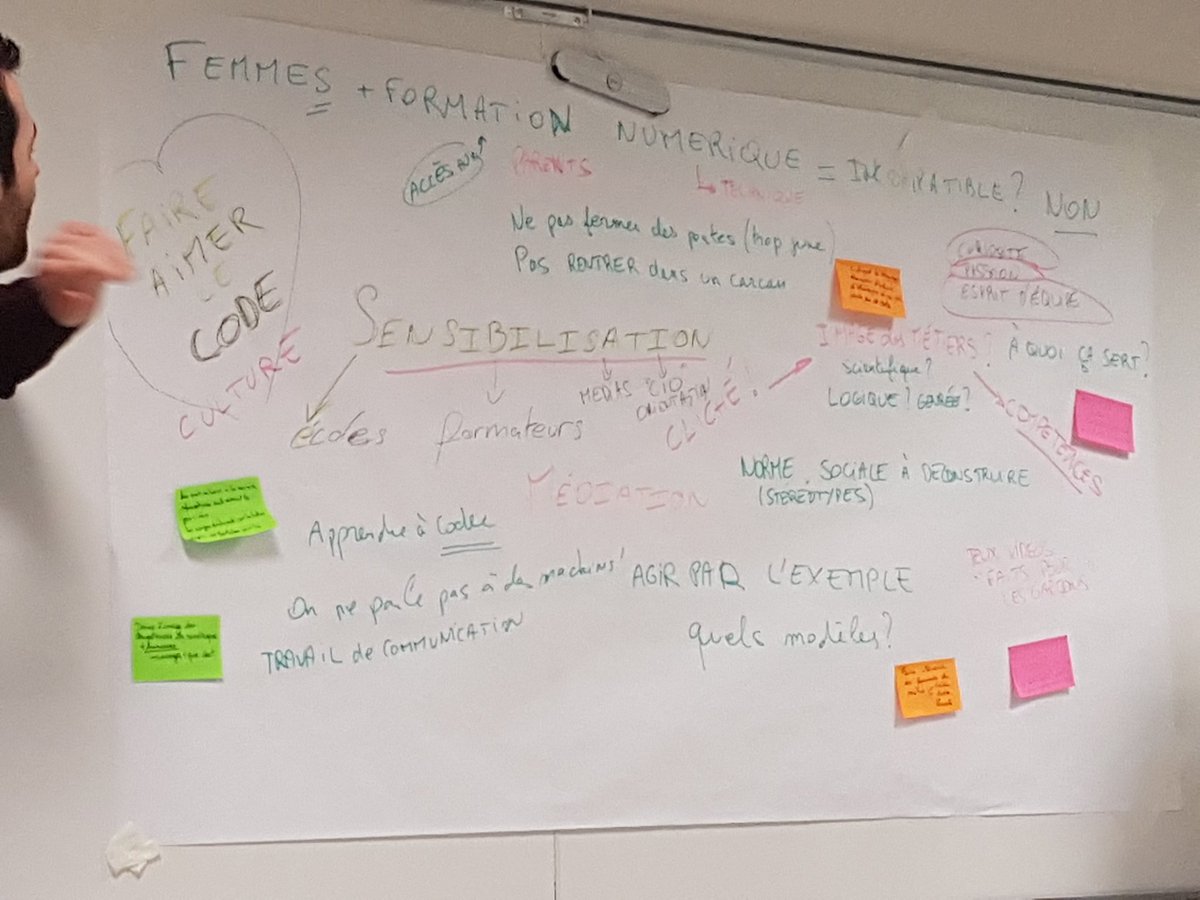 FEMMES + FORMATION NUMERIQUE = INCOMPATIBLE? NON
ACCÈS
PARENTS
↳ TECHNIQUE
Ne pas fermer des portes (trop jeune)
Pas RENTRER dans un carcan
CURIOSITÉ
PASSION
ESPRIT D'ÉQUIPE
FAIRE
AIMER
LE
CODE
CULTURE
SENSIBILISATION
écoles
formateurs
MEDIAS
CIO
ORIENTATION
CLICHÉ!
IMAGE des MÉTIERS?
scientifique?
LOGIQUE?
À QUOI ÇA SERT?
COMPETENCES
MÉDIATION
NORME SOCIALE À DÉCONSTRUIRE
(STEREOTYPES)
Apprendre à coder
On ne parle pas à des machines
TRAVAIL de COMMUNICATION
AGIR PAR L'EXEMPLE
quels modèles?
JEUX VIDEOS
FAITS POUR
LES GARÇONS